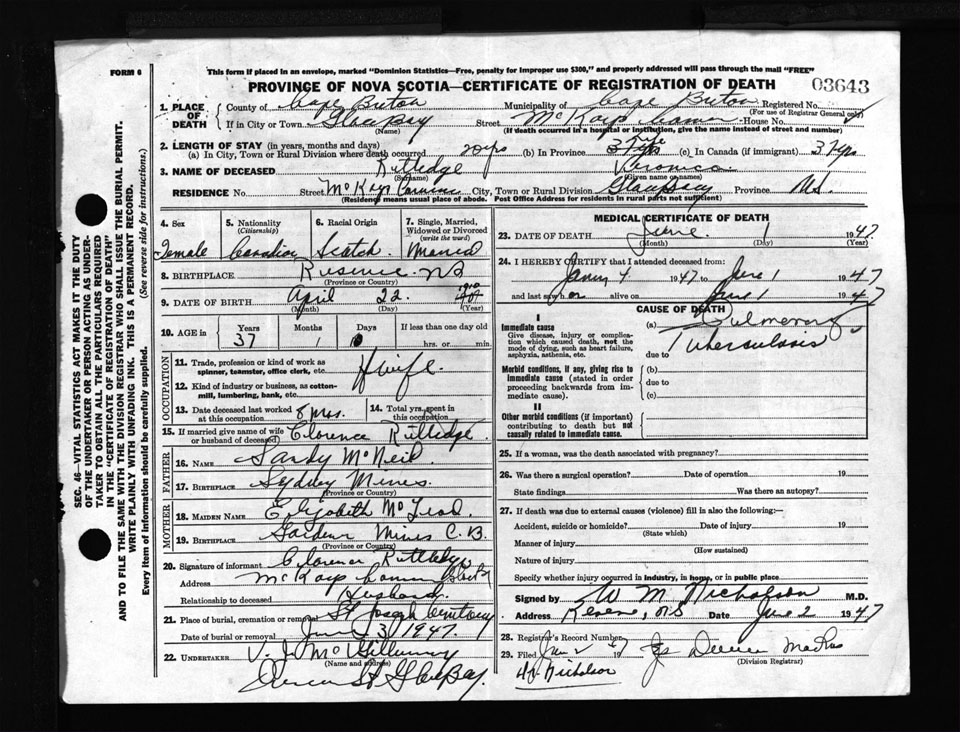 FORM 6
This form if placed in an envelope, marked "Dominion Statistics—Free, penalty for improper use $300," and properly addressed will pass through the mail "FREE"
PROVINCE OF NOVA SCOTIA—CERTIFICATE OF REGISTRATION OF DEATH
03643
1. PLACE OF DEATH
County of Cape Breton Municipality of Cape Breton Registered No.
(For use of Registrar General only)
If in City or Town Glace Bay Street McKays Corner House No.
(Name) (If death occurred in a hospital or institution, give the name instead of street and number)
2. LENGTH OF STAY (in years, months and days)
(a) In City, Town or Rural Division where death occurred 20 yrs (b) In Province Life (c) In Canada (if immigrant) 37 yrs
3. NAME OF DECEASED Rutledge Veronica
(Surname) (Given name or names)
RESIDENCE No. Street McKays Corner City, Town or Rural Division Glace Bay Province N.S.
(Residence means usual place of abode. Post Office Address for residents in rural parts not sufficient)
4. Sex 5. Nationality (Citizenship) 6. Racial Origin 7. Single, Married, Widowed or Divorced (write the word)
Female Canadian Scotch Married
8. BIRTHPLACE Reserve
(Province or Country)
9. DATE OF BIRTH April 22 1910
(Month) (Day) (Year)
10. AGE in Years Months Days If less than one day old
37 1 10 hrs. or min.
OCCUPATION
11. Trade, profession or kind of work as spinner, teamster, office clerk, etc. H wife
12. Kind of industry or business, as cotton-mill, lumbering, bank, etc.
13. Date deceased last worked at this occupation 8 mos. 14. Total yrs. spent in this occupation
15. If married give name of wife or husband of deceased Clarence Rutledge
FATHER
16. NAME Sandy McNeil
17. BIRTHPLACE Sydney Mines
(Province or Country)
MOTHER
18. MAIDEN NAME Elizabeth McLeod
19. BIRTHPLACE Gardener Mines C. B.
(Province or Country)
20. Signature of informant Clarence Rutledge
Address McKays Corner
Relationship to deceased Husband
21. Place of burial, cremation or removal St Joseph Cemetery
Date of burial or removal June 3, 1947
22. UNDERTAKER V. J. McGillivray
(Name and address)
St Glace Bay.
MEDICAL CERTIFICATE OF DEATH
23. DATE OF DEATH June 1 1947
(Month) (Day) (Year)
24. I HEREBY CERTIFY that I attended deceased from:
Jany 4 1947 to June 1 1947
and last saw h alive on June 1 1947
CAUSE OF DEATH
I
Immediate cause
Give disease, injury or complication which caused death, not the mode of dying, such as heart failure, asphyxia, asthenia, etc.
(a) Pulmonary
due to Tuberculosis
Morbid conditions, if any, giving rise to immediate cause (stated in order proceeding backwards from immediate cause).
(b)
due to
(c)
II
Other morbid conditions (if important) contributing to death but not causally related to immediate cause.
25. If a woman, was the death associated with pregnancy?
26. Was there a surgical operation? Date of operation 19
State findings Was there an autopsy?
27. If death was due to external causes (violence) fill in also the following:—
Accident, suicide or homicide? Date of injury 19
(State which)
Manner of injury
(How sustained)
Nature of injury
Specify whether injury occurred in industry, in home, or in public place
Signed by W M Nicholson M.D.
Address N.S Date June 2 1947
28. Registrar's Record Number
29. Filed June 2 1947
(Division Registrar)
Nicholson
SEC. 46—VITAL STATISTICS ACT MAKES IT THE DUTY
OF THE UNDERTAKER OR PERSON ACTING AS UNDER-
TAKER TO OBTAIN ALL THE PARTICULARS REQUIRED
IN THE "CERTIFICATE OF REGISTRATION OF DEATH"
AND TO FILE THE SAME WITH THE DIVISION REGISTRAR WHO SHALL ISSUE THE BURIAL PERMIT.
WRITE PLAINLY WITH UNFADING INK. THIS IS A PERMANENT RECORD.
Every item of information should be carefully supplied. (See reverse side for instructions.)